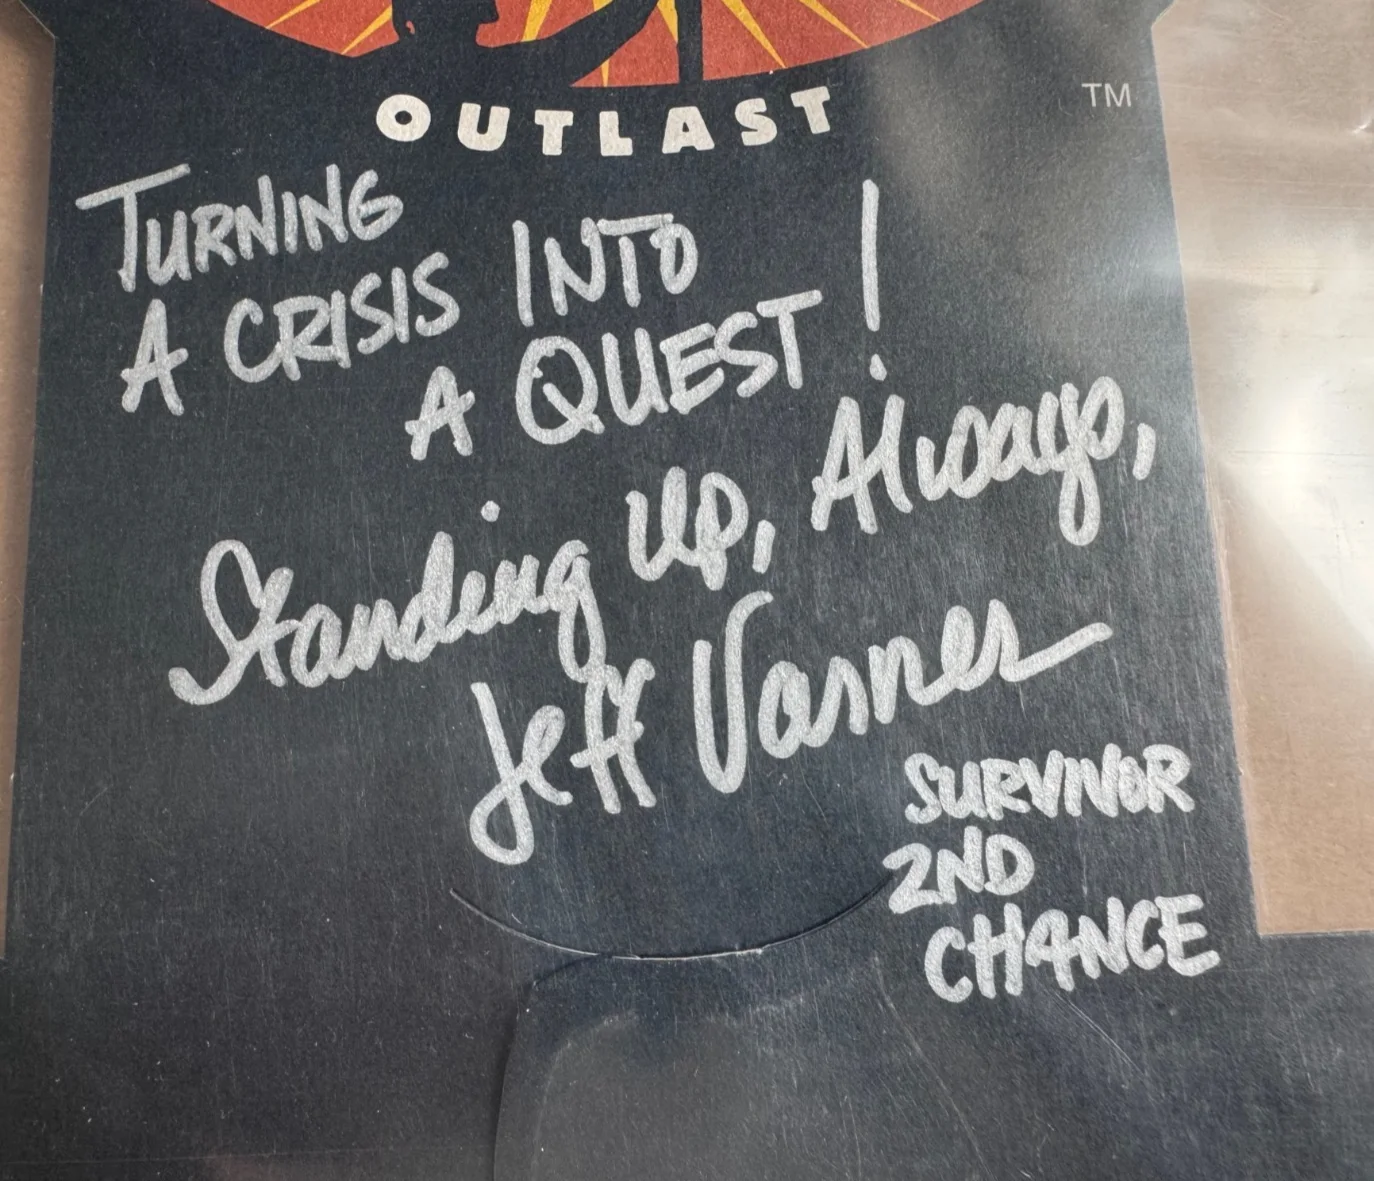 OUTLAST
TM
TURNING
A CRISIS INTO
A QUEST!
Standing Up, Always,
Jeff Varner
SURVIVOR
2ND
CHANCE